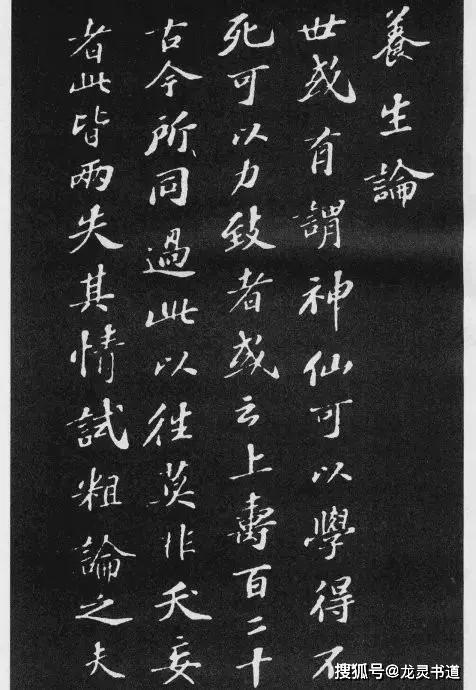 養生論
世或有謂神仙可以學得不
死可以力致者或云上壽百二十
古今所同過此以往莫非夭妄
者此皆兩失其情試粗論之夫
搜狐号@龙灵书道